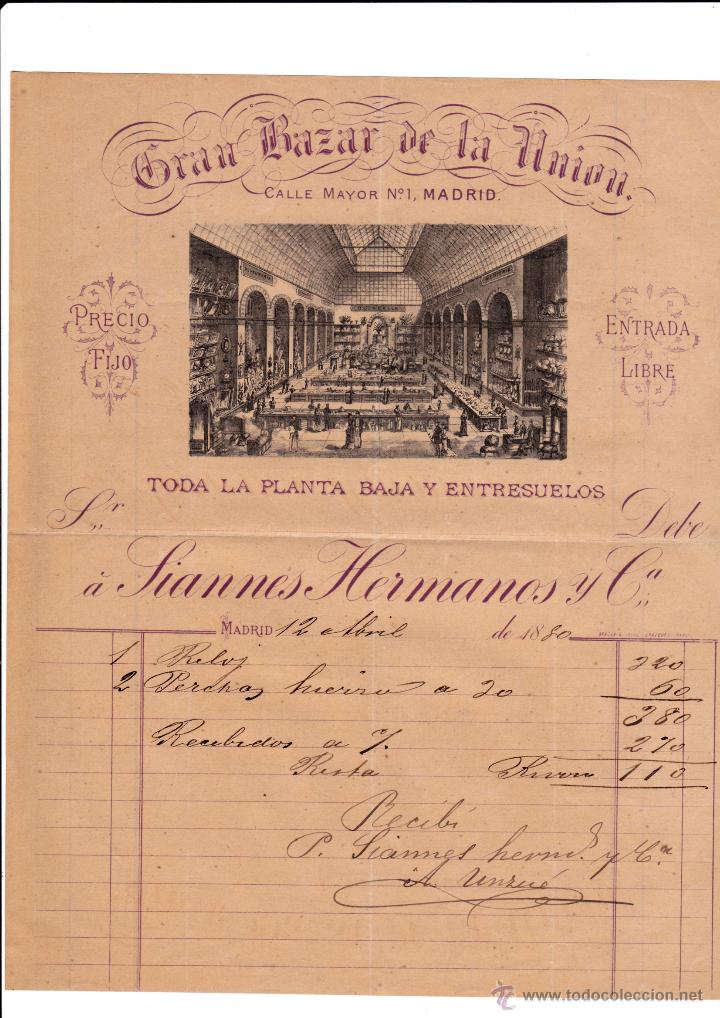 Gran Bazar de la Union.
CALLE MAYOR Nº1, MADRID.
PRECIO FIJO
ENTRADA LIBRE
TODA LA PLANTA BAJA Y ENTRESUELOS
Sr. Debe
á Siannes Hermanos y Cª
MADRID 12 Abril de 1880
1 Reloj 320
2 Perchas hierro a 30 60
380
Recibidos a %. 270
Resta 110
Recibí
P. Siannes herms. y Cª
A. Unzué
www.todocoleccion.net